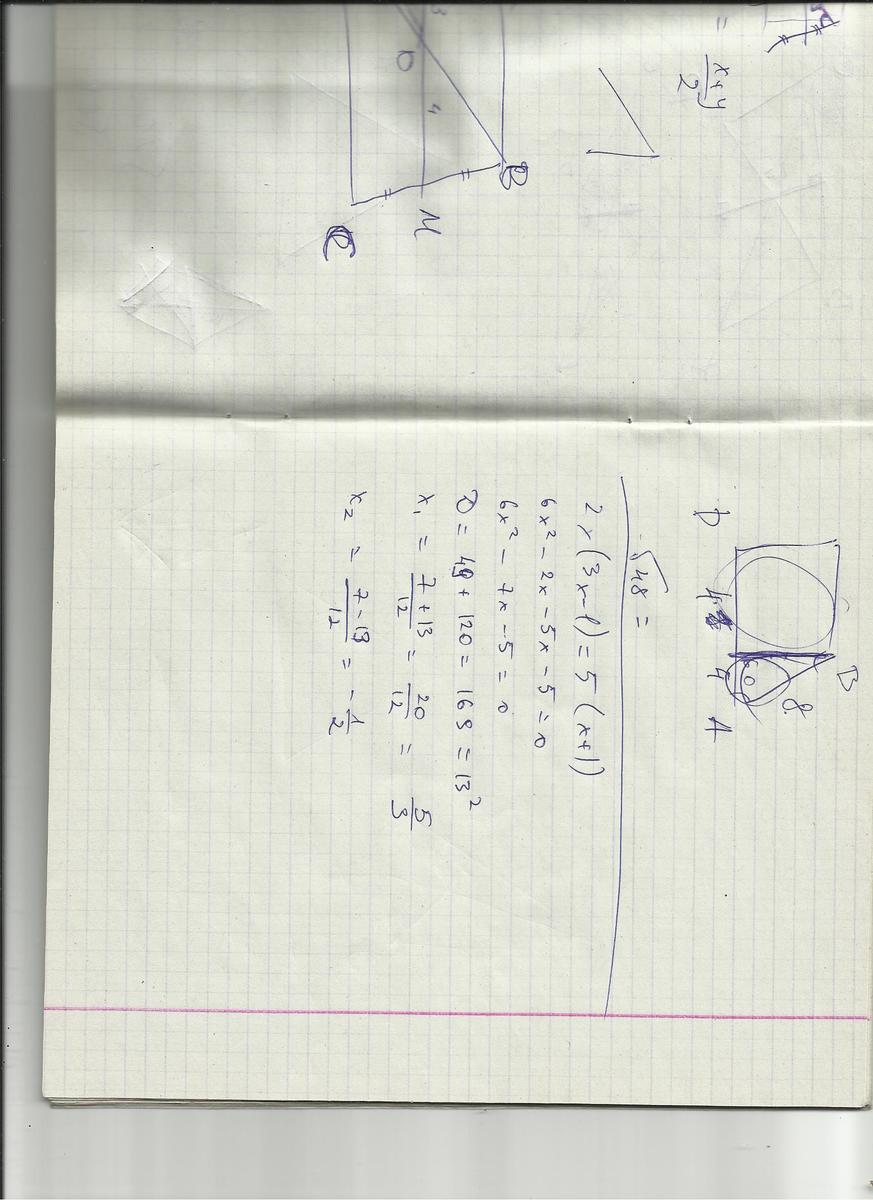 = x+y/2
3
O
4
B
M
C
D
B
8
4
A
√48 =
2x(3x-1)=5(x+1)
6x²-2x-5x-5=0
6x²-7x-5=0
D=49+120=169=13²
x₁ = 7+13/12 = 20/12 = 5/3
x₂ = 7-13/12 = -1/2